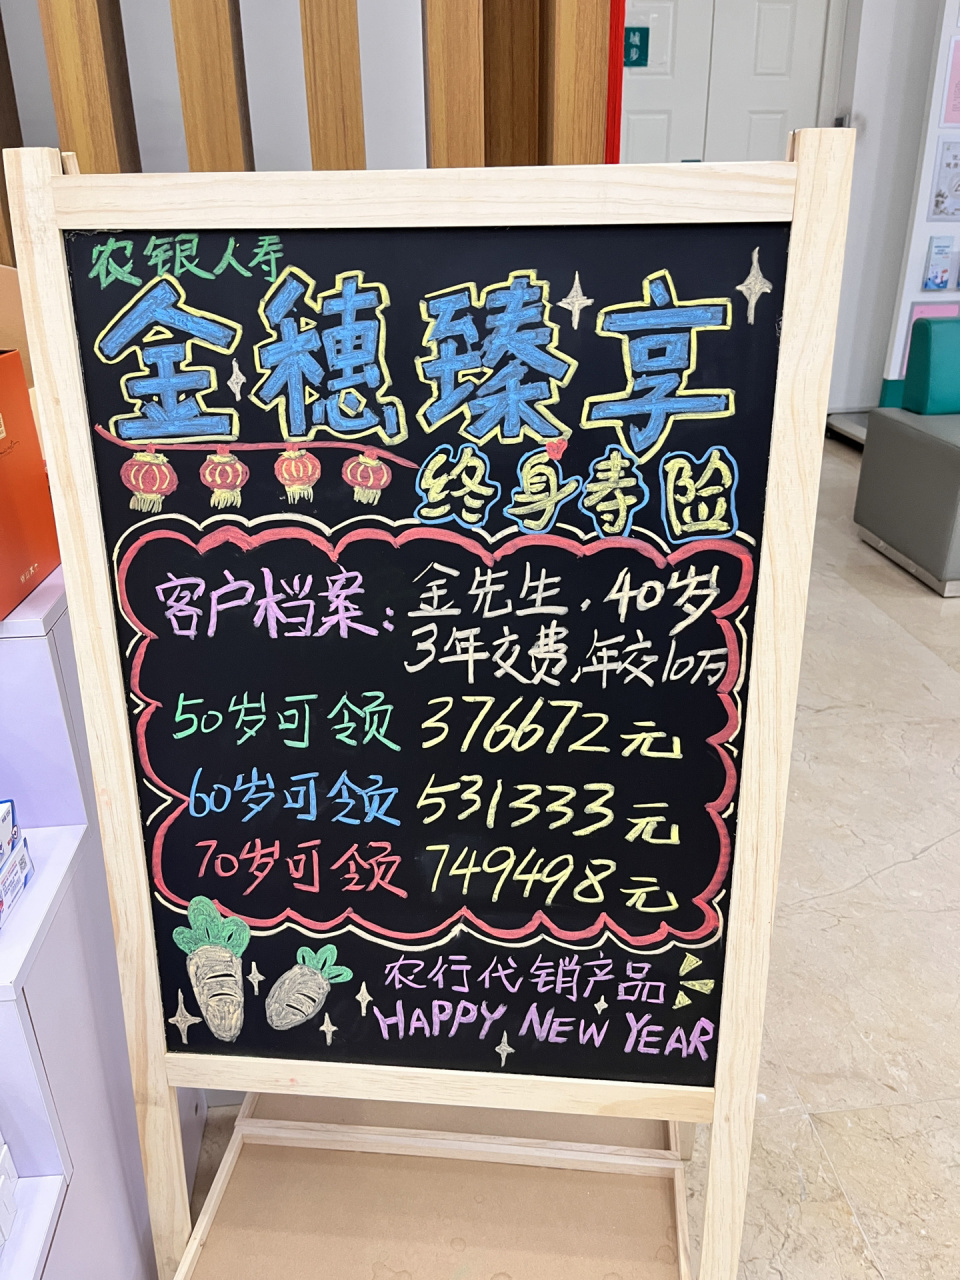 农银人寿
金穗臻享
终身寿险
客户档案：金先生，40岁
3年交费，年交10万
50岁可领 376672元
60岁可领 531333元
70岁可领 749498元
农行代销产品
HAPPY NEW YEAR